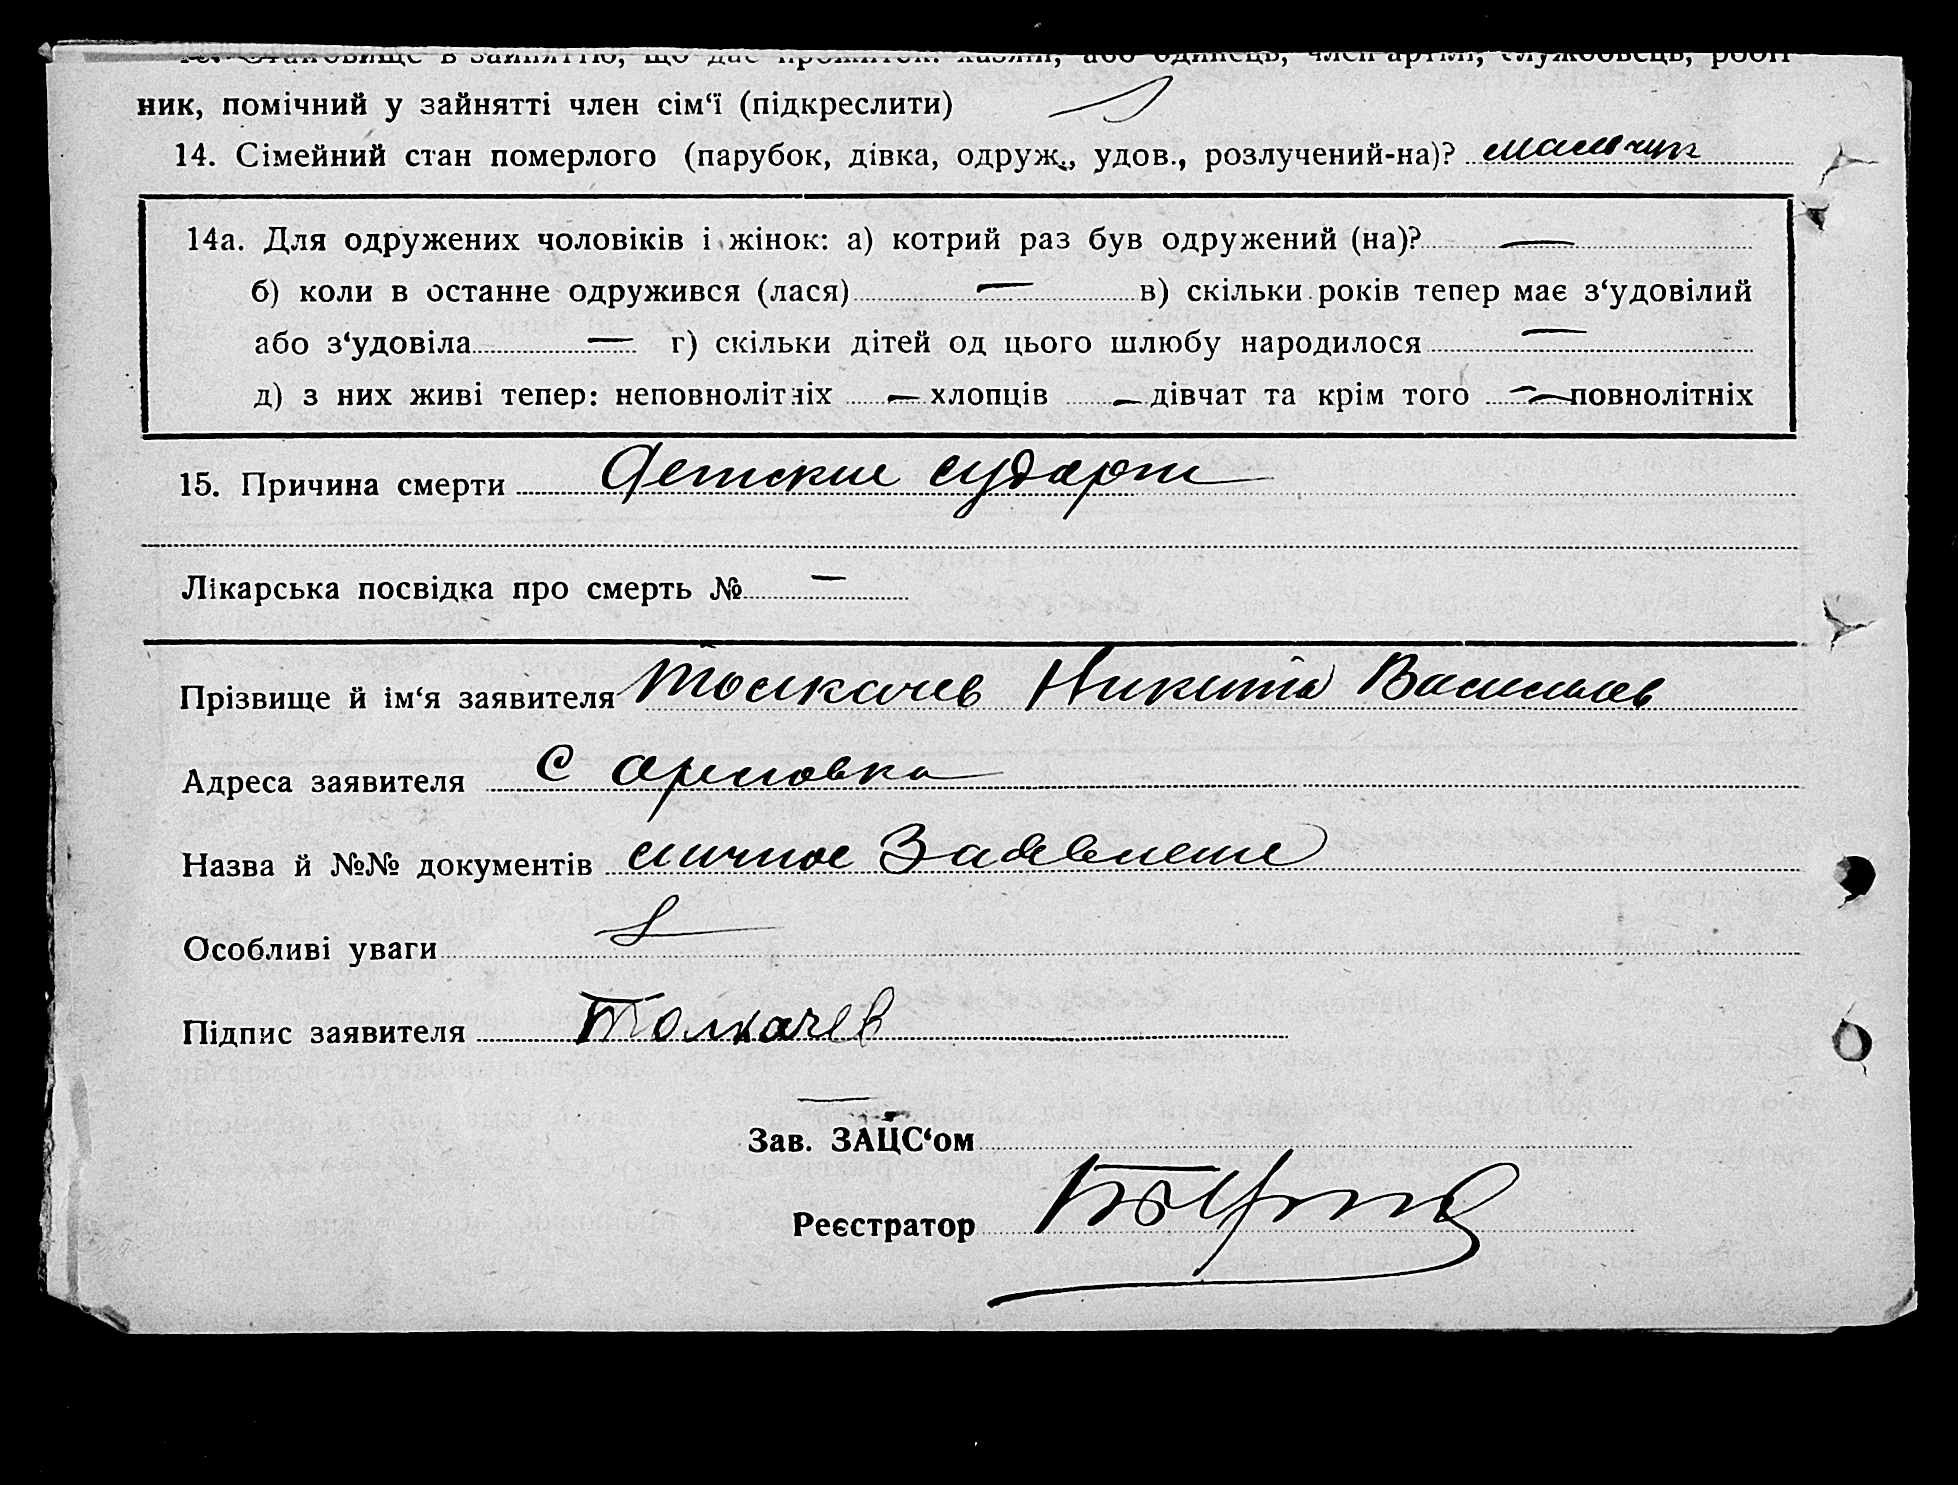 13. Становище в зайняттю, що дає прожиток: хазяїн, або одинець, член артілі, службовець, робіт
ник, помічний у зайнятті член сім‘ї (підкреслити)
14. Сімейний стан померлого (парубок, дівка, одруж., удов., розлучений-на)? мальчик
14а. Для одружених чоловіків і жінок: а) котрий раз був одружений (на)? —
б) коли в останне одружився (лася) — в) скільки років тепер має з‘удовілий
або з‘удовіла — г) скільки дітей од цього шлюбу народилося —
д) з них живі тепер: неповнолітніх — хлопців — дівчат та крім того — повнолітніх
15. Причина смерти Детские
Лікарська посвідка про смерть № —
Прізвище й ім‘я заявителя Толкачев Никита Васильев
Адреса заявителя С
Назва й №№ документів личное Заявление
Особливі уваги
Підпис заявителя Толкачев
Зав. ЗАЦС‘ом
Реєстратор